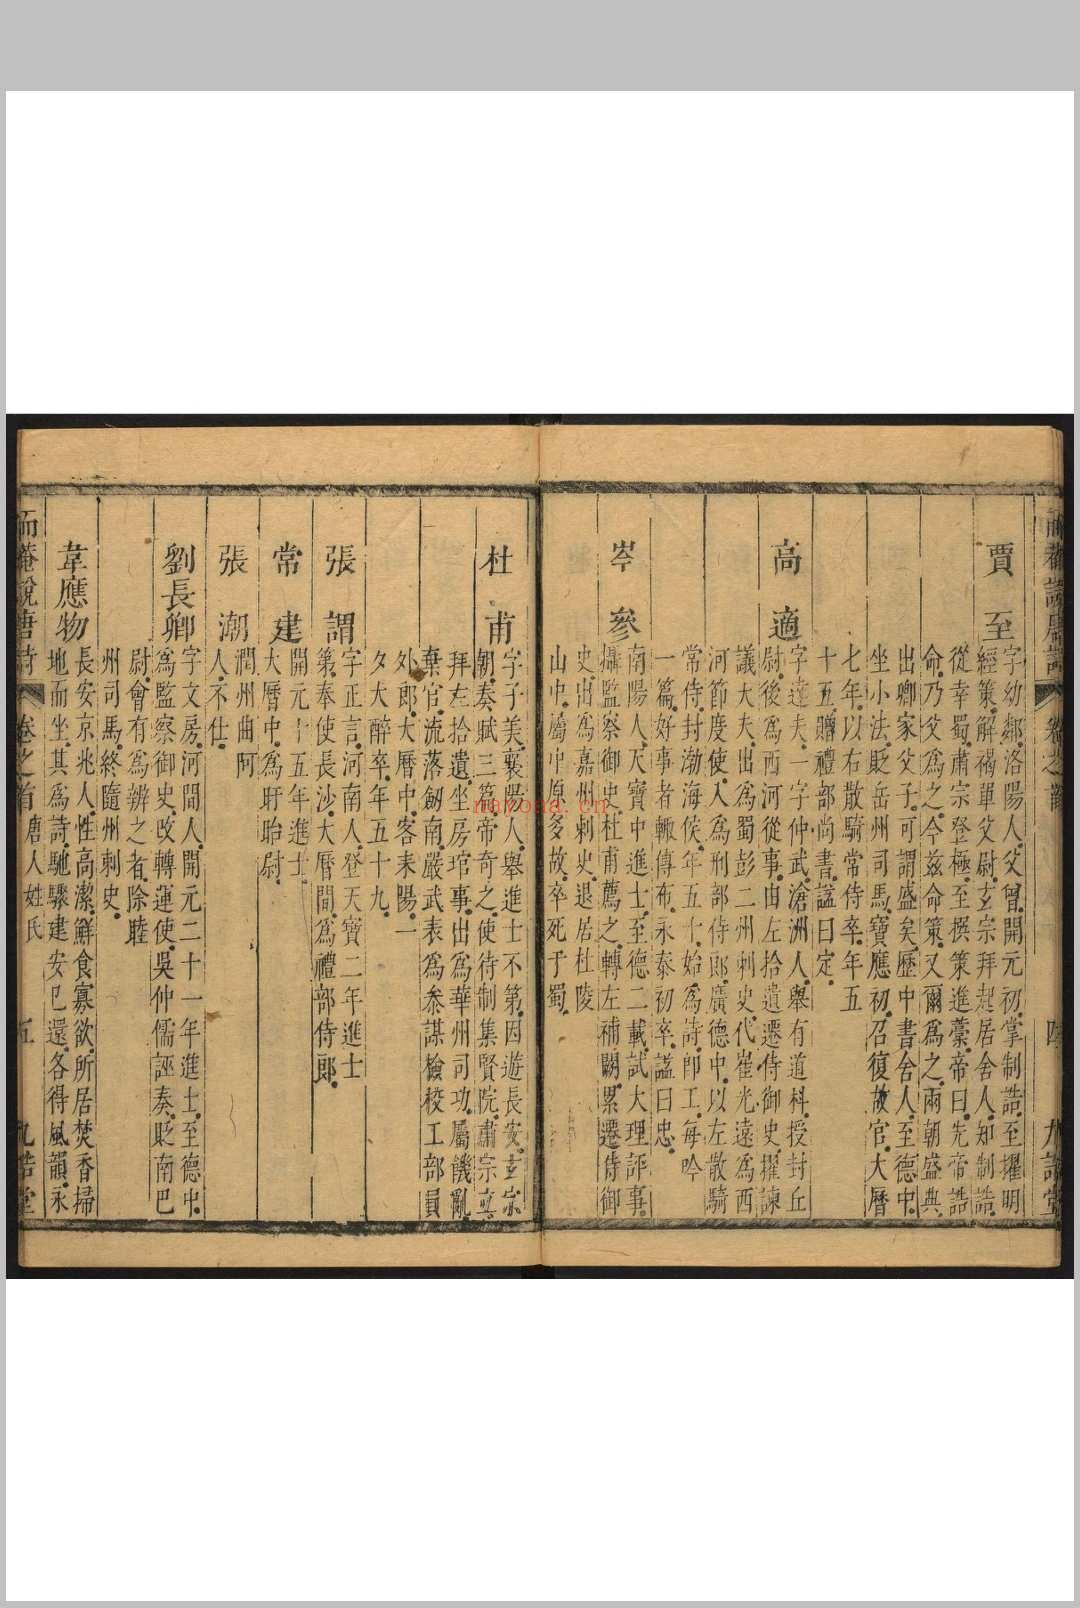 而菴說唐詩 卷之首 四 九誥堂
賈至
字幼鄰洛陽人父曾開元初掌制誥至擢明
經策解褐單父尉玄宗拜起居舍人知制誥
從幸蜀肅宗登極至撰策進藁帝曰先帝誥
命乃父爲之今茲命策又爾爲之兩朝盛典
出卿家父子可謂盛矣歷中書舍人至德中
坐小法貶岳州司馬寶應初召復故官大曆
七年以右散騎常侍卒年五
十五贈禮部尚書諡曰定
高適
字達夫一字仲武滄洲人舉有道科授封丘
尉後爲西河從事由左拾遺遷侍御史擢諫
議大夫出爲蜀彭二州刺史代崔光遠爲西
河節度使入爲刑部侍郎廣德中以左散騎
常侍封渤海侯年五十始爲詩卽工每吟
一篇好事者輙傳布永泰初卒諡曰忠
岑參
南陽人天寶中進士至德二載試大理評事
攝監察御史杜甫薦之轉左補闕累遷侍御
史出爲嘉州刺史退居杜陵
山中屬中原多故卒死于蜀
杜甫
字子美襄陽人舉進士不第因遊長安玄宗
朝奏賦三篇帝奇之使待制集賢院肅宗立
拜左拾遺坐房琯事出爲華州司功屬饑亂
棄官流落劒南嚴武表爲叅謀檢校工部員
外郎大曆中客耒陽一
夕大醉卒年五十九
張謂
字正言河南人登天寶二年進士
第奉使長沙大曆間爲禮部侍郎
常建
開元十五年進士
大曆中爲盱眙尉
張潮
潤州曲阿
人不仕
劉長卿
字文房河間人開元二十一年進士至德中
爲監察御史改轉運使吳仲儒誣奏貶南巴
尉會有爲辨之者除睦
州司馬終隨州刺史
韋應物
長安京兆人性高潔鮮食寡欲所居焚香掃
地而坐其爲詩馳驟建安已還各得風韻永
而菴說唐詩 卷之首 唐人姓氏 五 九誥堂
nayona.cn